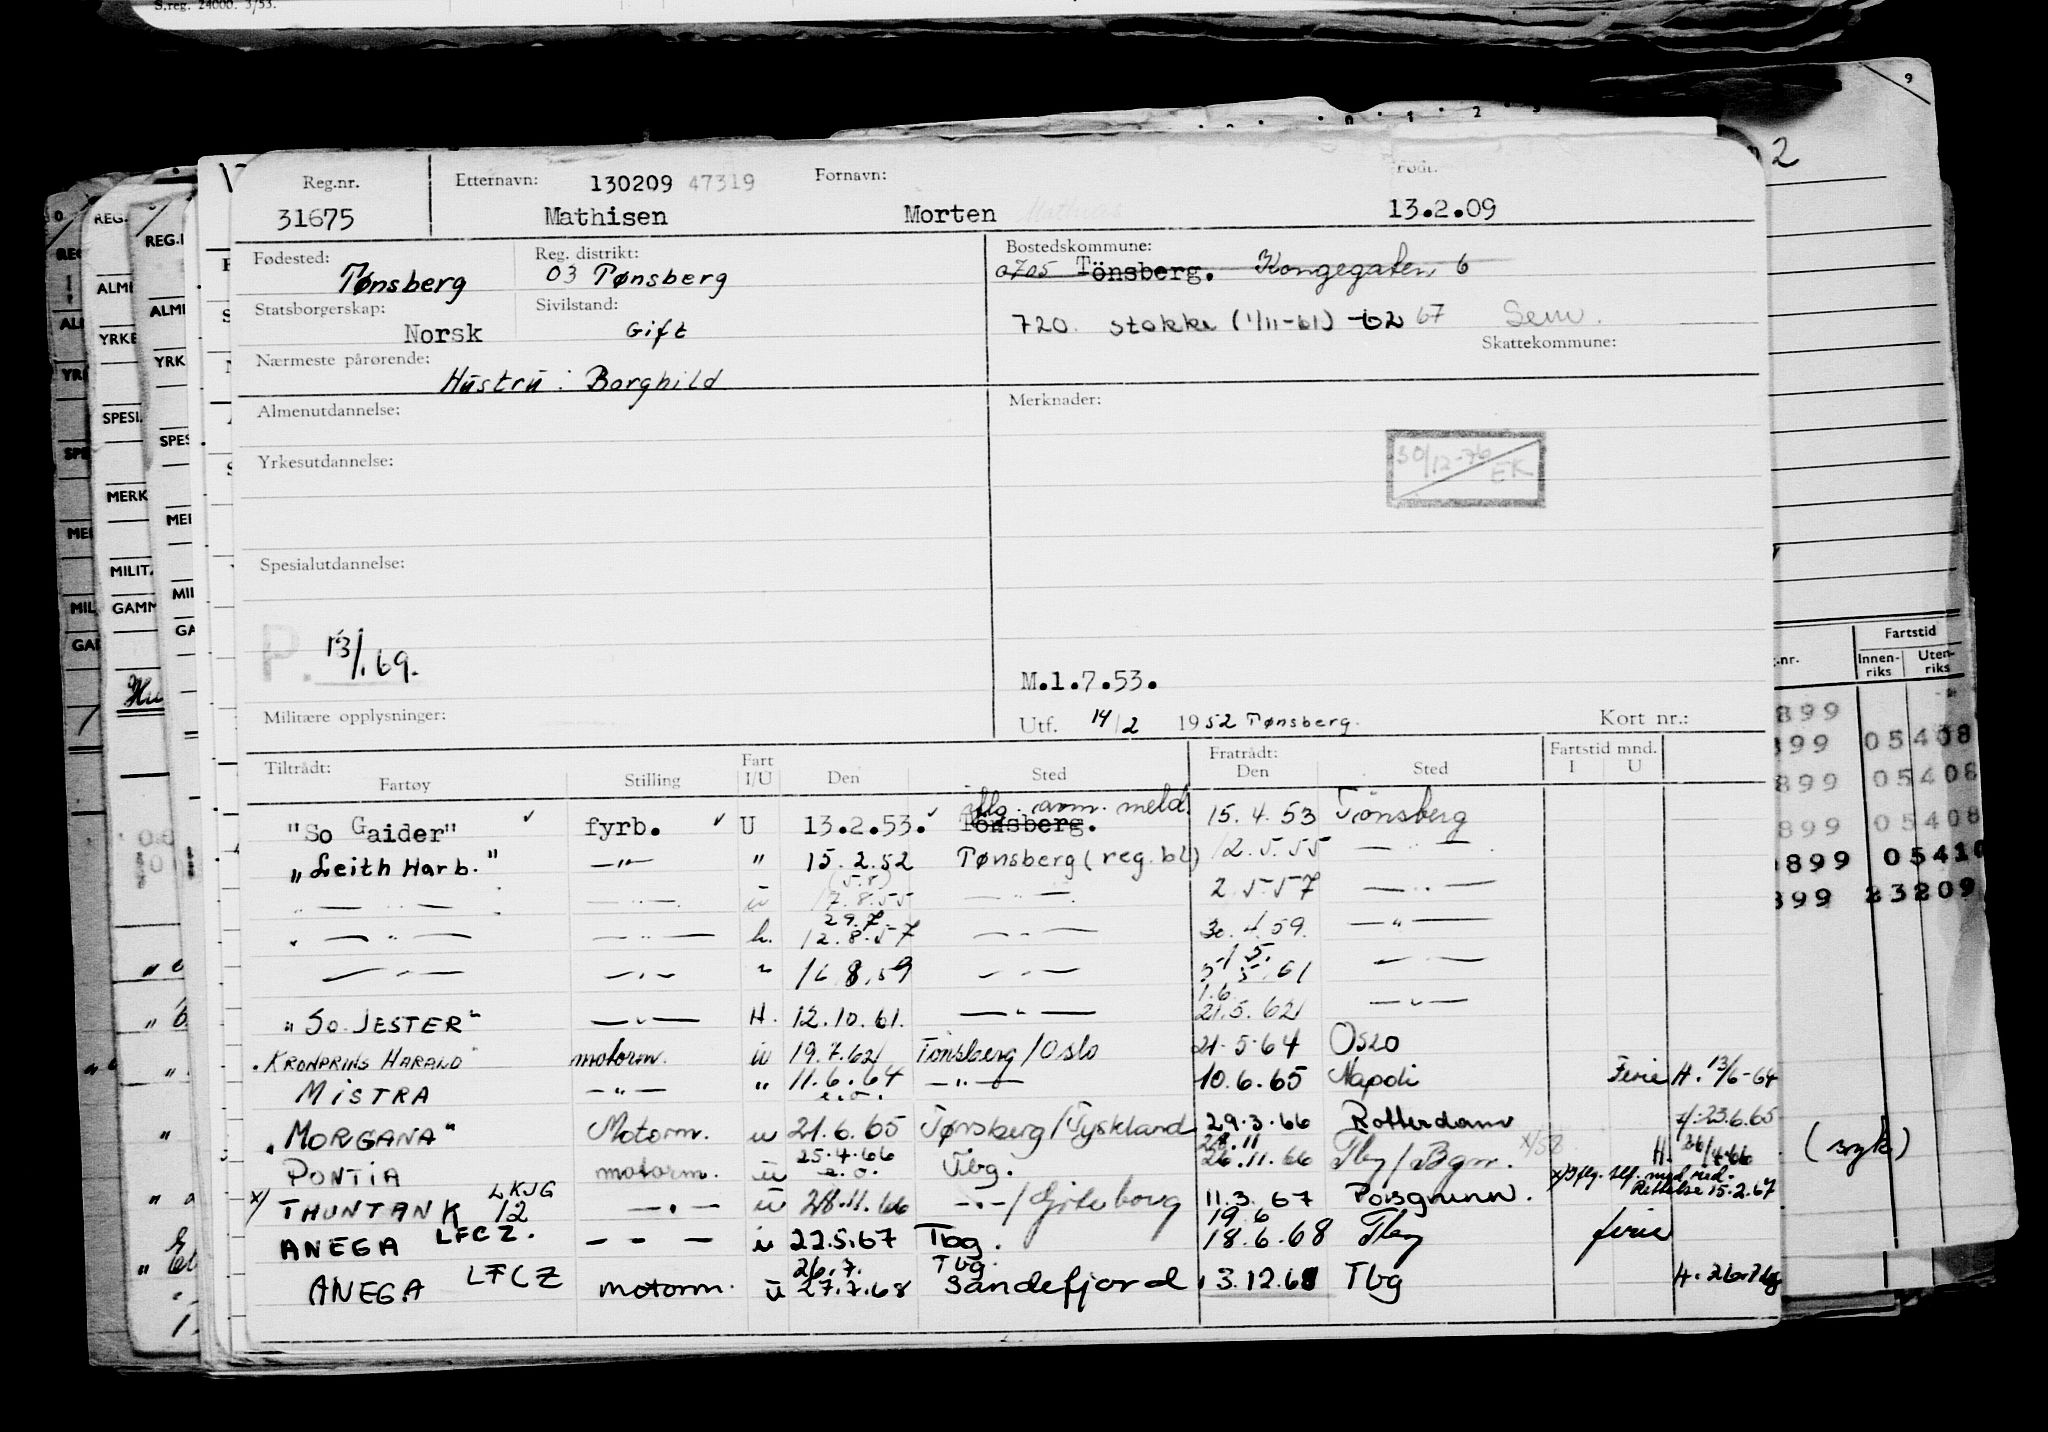 S.reg. 24000. 3/53.
Reg.nr. Etternavn: 130209 47319 Fornavn: Født:
31675 Mathisen Morten Mathias 13.2.09
Fødested: Tønsberg Reg. distrikt: 03 Tønsberg Bostedskommune: 0705 Tönsberg. Kongegaten 6
Statsborgerskap: Norsk Sivilstand: Gift 720. Stokke (1/11-61) -62 67 Sem.
Skattekommune:
Nærmeste pårørende: Hustru: Borghild
Almenutdannelse: Merknader:
30/12-76 EK
Yrkesutdannelse:
Spesialutdannelse:
P. 13/1.69.
M.1.7.53.
Militære opplysninger: Utf. 14/2 1952 Tønsberg. Kort nr.:
Tiltrådt: Fratrådt: Fartstid mnd.
Fartøy Stilling Fart I/U Den Sted Den Sted I U
iflg. avm. meld.
"So Gaider" fyrb. U 13.2.53. Tönsberg. 15.4.53 Tönsberg
"Leith Harb." —"— " 15.2.52 Tønsberg (reg.bl) 12.5.55 — " —
(5.8)
— " — — " — u 17.8.55 — " — 2.5.57 — " —
29.7.
— " — — " — h. 12.8.57 — " — 30.4.59. — " —
1.5.
— " — — " — " 16.8.59 — " — 5.5.61 — " —
1.6.
"So JESTER" — " — H. 12.10.61. — " — 21.5.62 — " —
"KRONPRINS HARALD" motorm. iu 19.7.62 Tønsberg/Oslo 21.5.64 Oslo
MISTRA — " — " 11.6.64 — " — 10.6.65 Napoli Ferie H. 13/6-64
e.o.
"MORGANA" Motorm. u 21.6.65 Tønsberg/Tyskland 29.3.66 Rotterdam 23.6.65
25.4.66 28.11
PONTIA motorm. u e.o. Tbg. 26.11.66 Tbg/Bgn. x/58 H. 26/4-66 (syk)
x/ THUNTANK 12 LKJG — " — u 28.11.66 — " —/Göteborg 11.3.67 Porsgrunn. x/ Iflg. tlf. med red. Rettelse 15.2.67
19.6
ANEGA LFCZ. — " — u 22.5.67 Tbg. 18.6.68 Tbg ferie
26.7. Tbg.
ANEGA LFCZ motorm. u 27.7.68 Sandefjord 13.12.68 Tbg H. 26.7.68
REG.
ALM
YRKE
SPESI
MERK
MILIT
GAMM
REG.
ALM
YRK
SPES
MER
MIL
GA
9
2
Fartstid
Innen-riks Uten-riks
899
899 05408
899 05408
899 05408
899 05410
899 23209